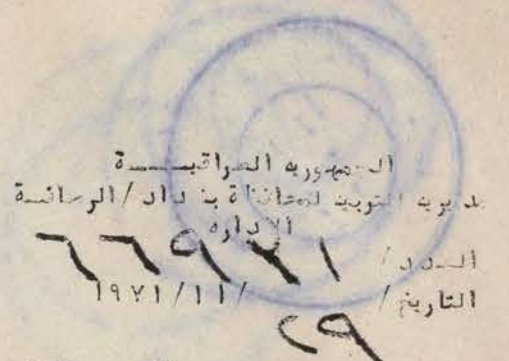 الجمهورية العراقيـــــة
مديرية التربية لمحافظة بغداد/الرصافــة
الاداره
العدد/ ٦٦٩٢١
التاريخ/ ٢٩/١١/١٩٧١